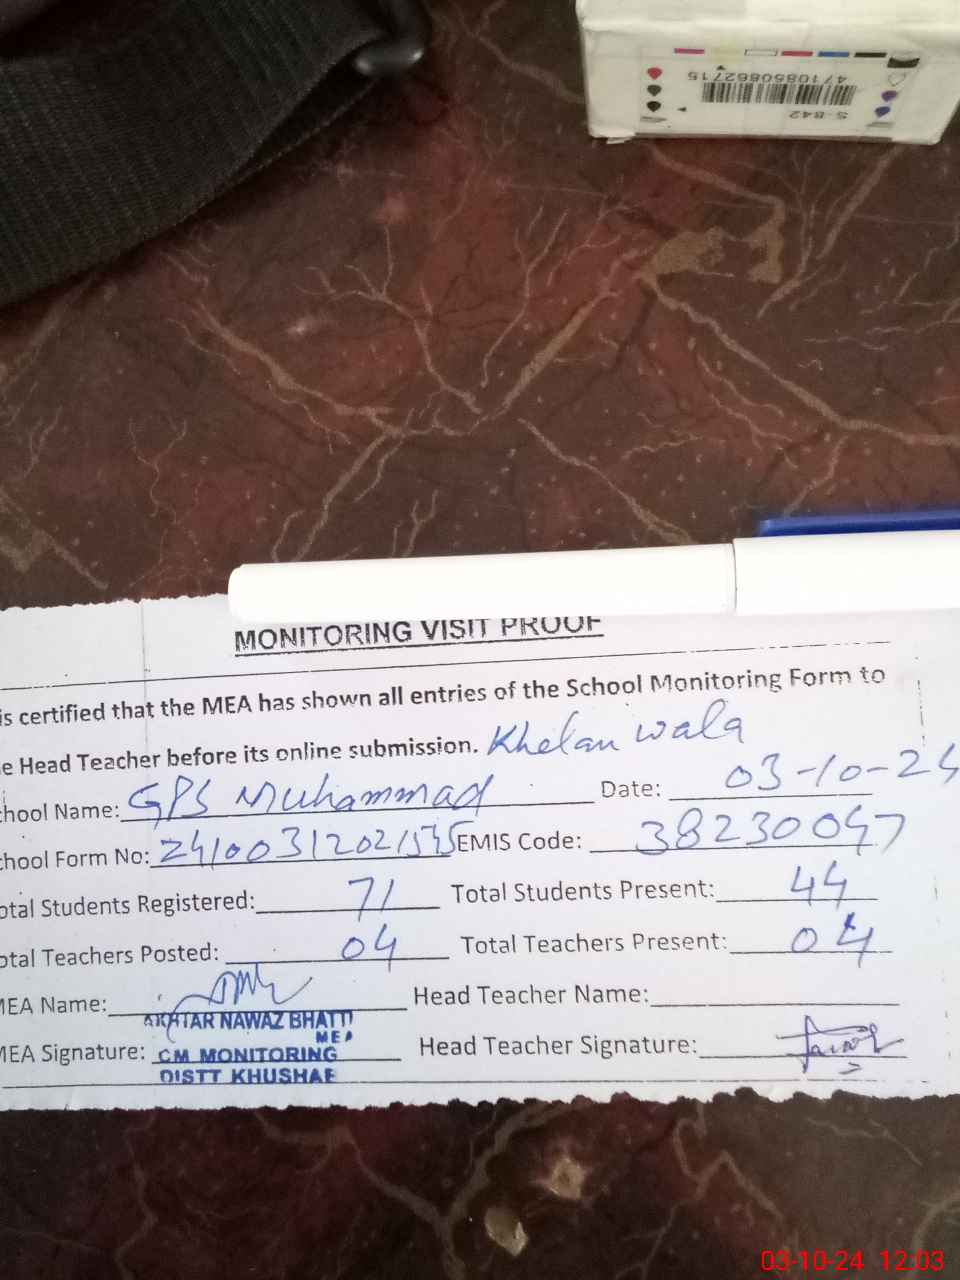 4710850862715
S-842
MONITORING VISIT PROOF
is certified that the MEA has shown all entries of the School Monitoring Form to
e Head Teacher before its online submission. Khelan wala
chool Name: GPS Muhammad Date: 03-10-24
chool Form No: 24100312021545 EMIS Code: 38230047
otal Students Registered: 71 Total Students Present: 44
otal Teachers Posted: 04 Total Teachers Present: 04
MEA Name: Head Teacher Name:
AKHTAR NAWAZ BHATTI
MEA
MEA Signature: CM MONITORING Head Teacher Signature:
DISTT KHUSHAB
03-10-24 12:03